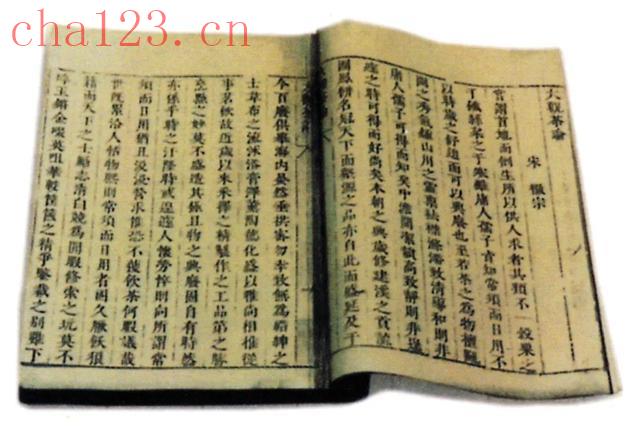 cha123.cn
大觀茶論
宋 徽宗
嘗謂首地而倒生所以供人求者其類不一穀粟之
於饑絲枲之於寒雖庸人孺子皆知常須而日用不
以時歲之舒迫而可以興廢也至若茶之為物擅甌
閩之秀氣鍾山川之靈稟祛襟滌滯致清導和則非
庸人孺子可得而知矣中澹閒潔韻高致靜則非遑
遽之時可得而好尚矣本朝之興歲修建溪之貢龍
團鳳餅名冠天下而壑源之品亦自此而盛延及于
今百廢俱舉海內晏然垂拱密勿幸致無為縉紳之
士韋布之流沐浴膏澤薰陶德化盛以雅尚相推從
事茗飲故近歲以來采擇之精製作之工品第之勝
烹點之妙莫不盛造其極且物之興廢固自有時然
亦係乎時之汙隆時或遑遽人懷勞悴則向所謂常
須而日用猶且汲汲營求惟恐不獲飲茶何暇議哉
世既累洽人恬物熙則常須而日用者因久厭飫狼
籍而天下之士勵志清白競為閒暇修索之玩莫不
碎玉鏘金啜英咀華較筐篋之精爭鑒裁之別雖下